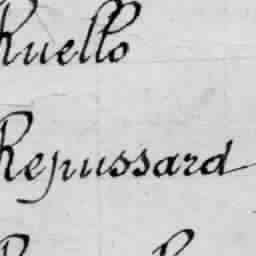 Ruello
Repussard